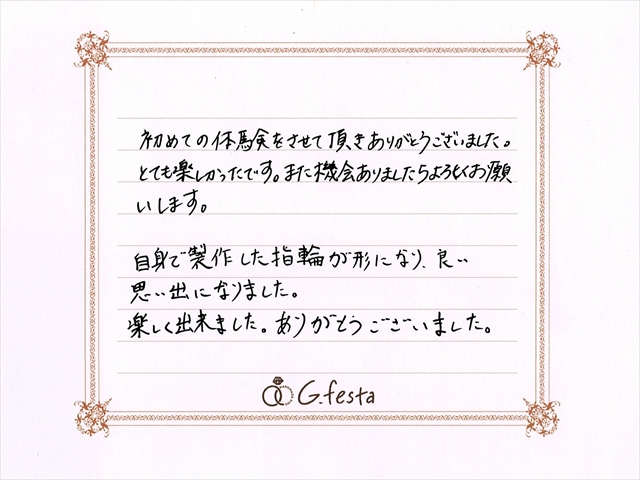 初めての体験をさせて頂きありがとうございました。
とても楽しかったです。また機会ありましたらよろしくお願
いします。
自身で製作した指輪が形になり、良い
思い出になりました。
楽しく出来ました。ありがとうございました。
G.festa